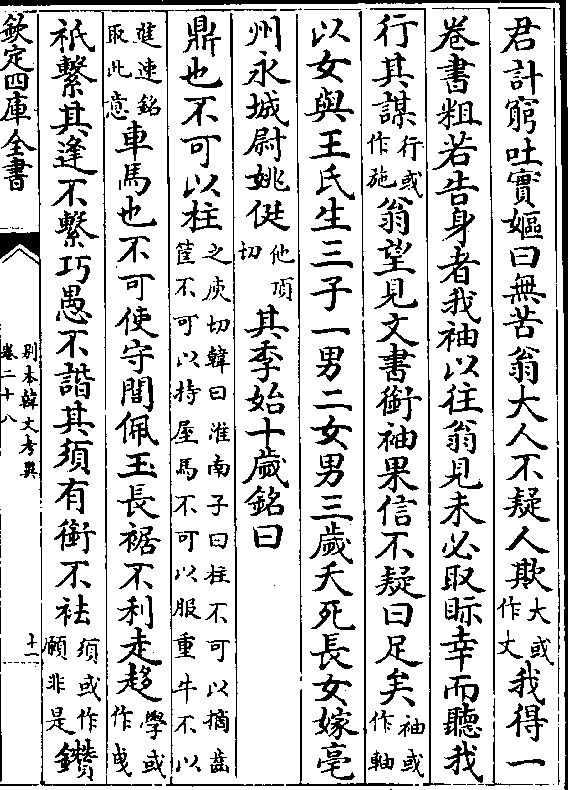 君計窮吐實嫗曰無苦翁大人不疑人欺大或作丈我得一
卷書粗若告身者我袖以往翁見未必取眎幸而聽我
行其謀行或作施翁望見文書銜袖果信不疑曰足矣袖或作軸
以女與王氏生三子一男二女男三歲夭死長女嫁亳
州永城尉姚侹他頂切其季始十歲銘曰
鼎也不可以柱之庾切韓曰淮南子曰柱不可以摘齒筐不可以持屋馬不可以服重牛不以
追速銘取此意車馬也不可使守閭佩玉長裾不利走趍學或作曳
祇繫其逢不繫巧愚不諧其須有銜不祛須或作願非是鑽
欽定四庫全書
別本韓文考異
卷二十八
十一